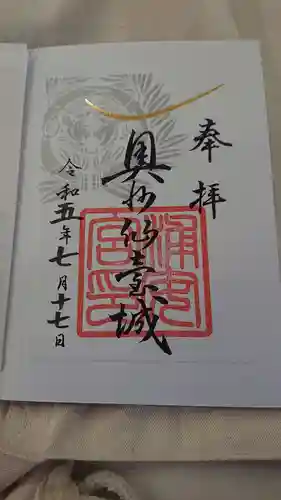 奉拝
奥州仙臺城
令和五年七月十七日